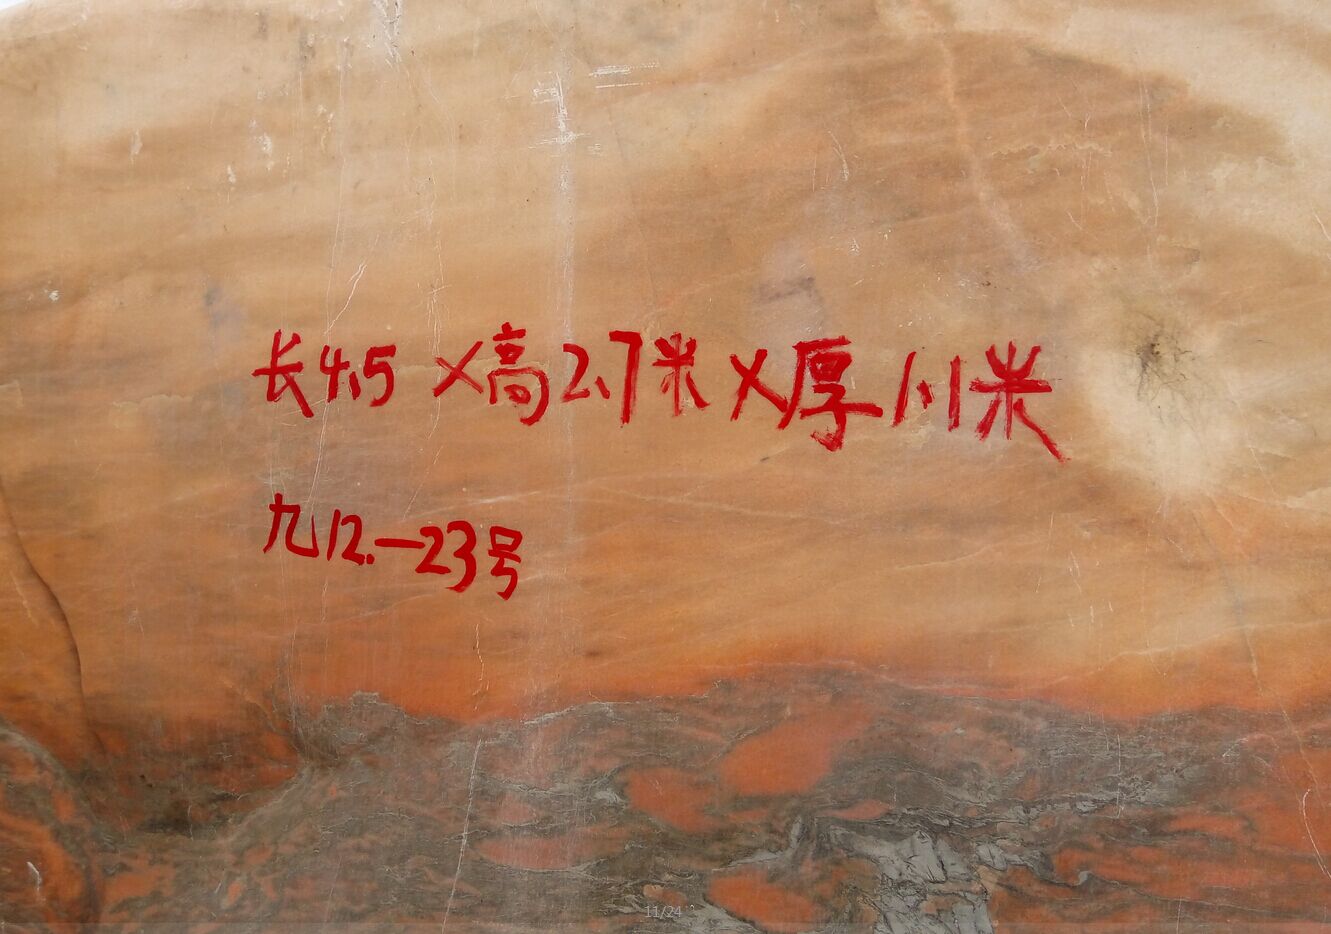 长4.5×高2.7米×厚1.1米
九12.—23号
11/24